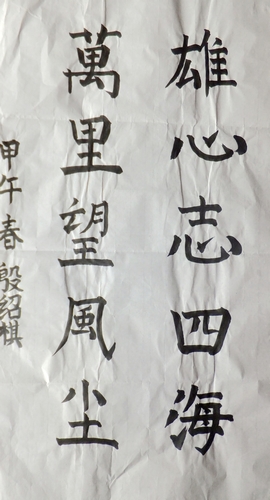 雄心志四海
萬里望風尘
甲午春殷绍棋